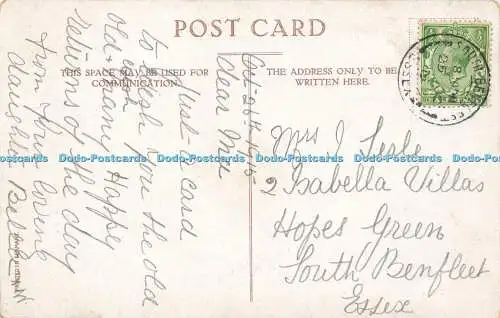 POST CARD
THIS SPACE MAY BE USED FOR
COMMUNICATION.
THE ADDRESS ONLY TO BE
WRITTEN HERE.
Oct 26th 1915
Dear Mrs
Just a card
to wish you the old
old wish
& many Happy
returns of the day
from your loving
daughter
Mrs J Seale
2 Isabella Villas
Hopes Green
South Benfleet
Essex
Dodo-Postcards Dodo-Postcards Dodo-Postcards Dodo-Postcards Dodo-Postcards Dodo-Postcards